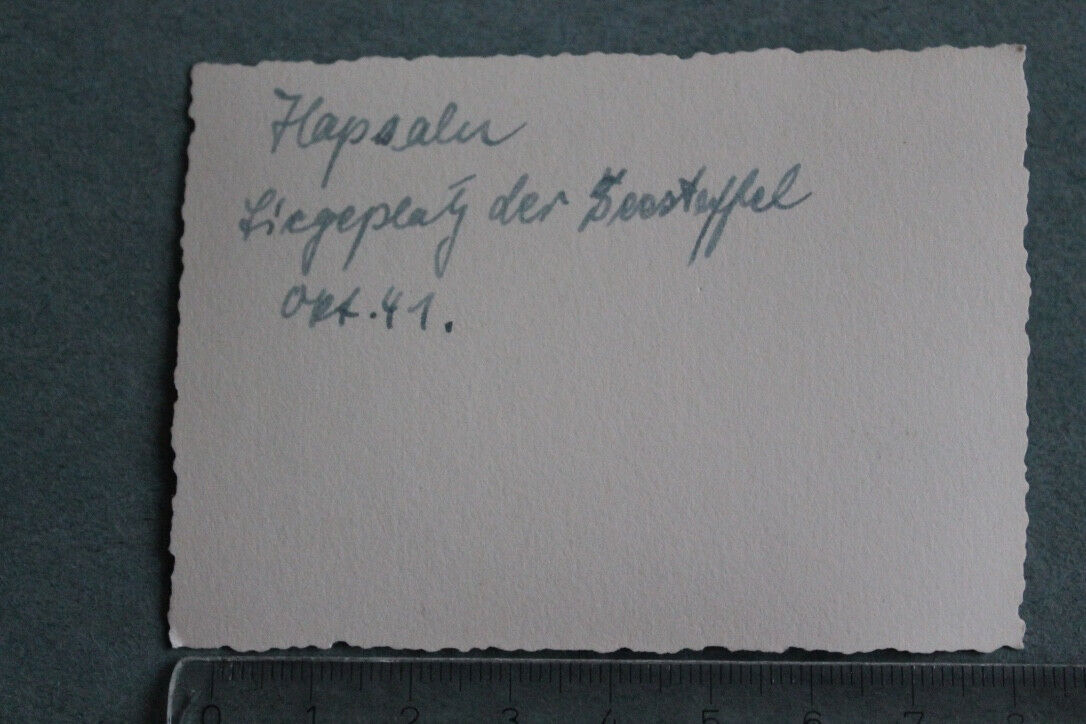 Hapsalu
Liegeplatz der Seestaffel
Okt. 41.
0 1 2 3 4 5 6 7 8